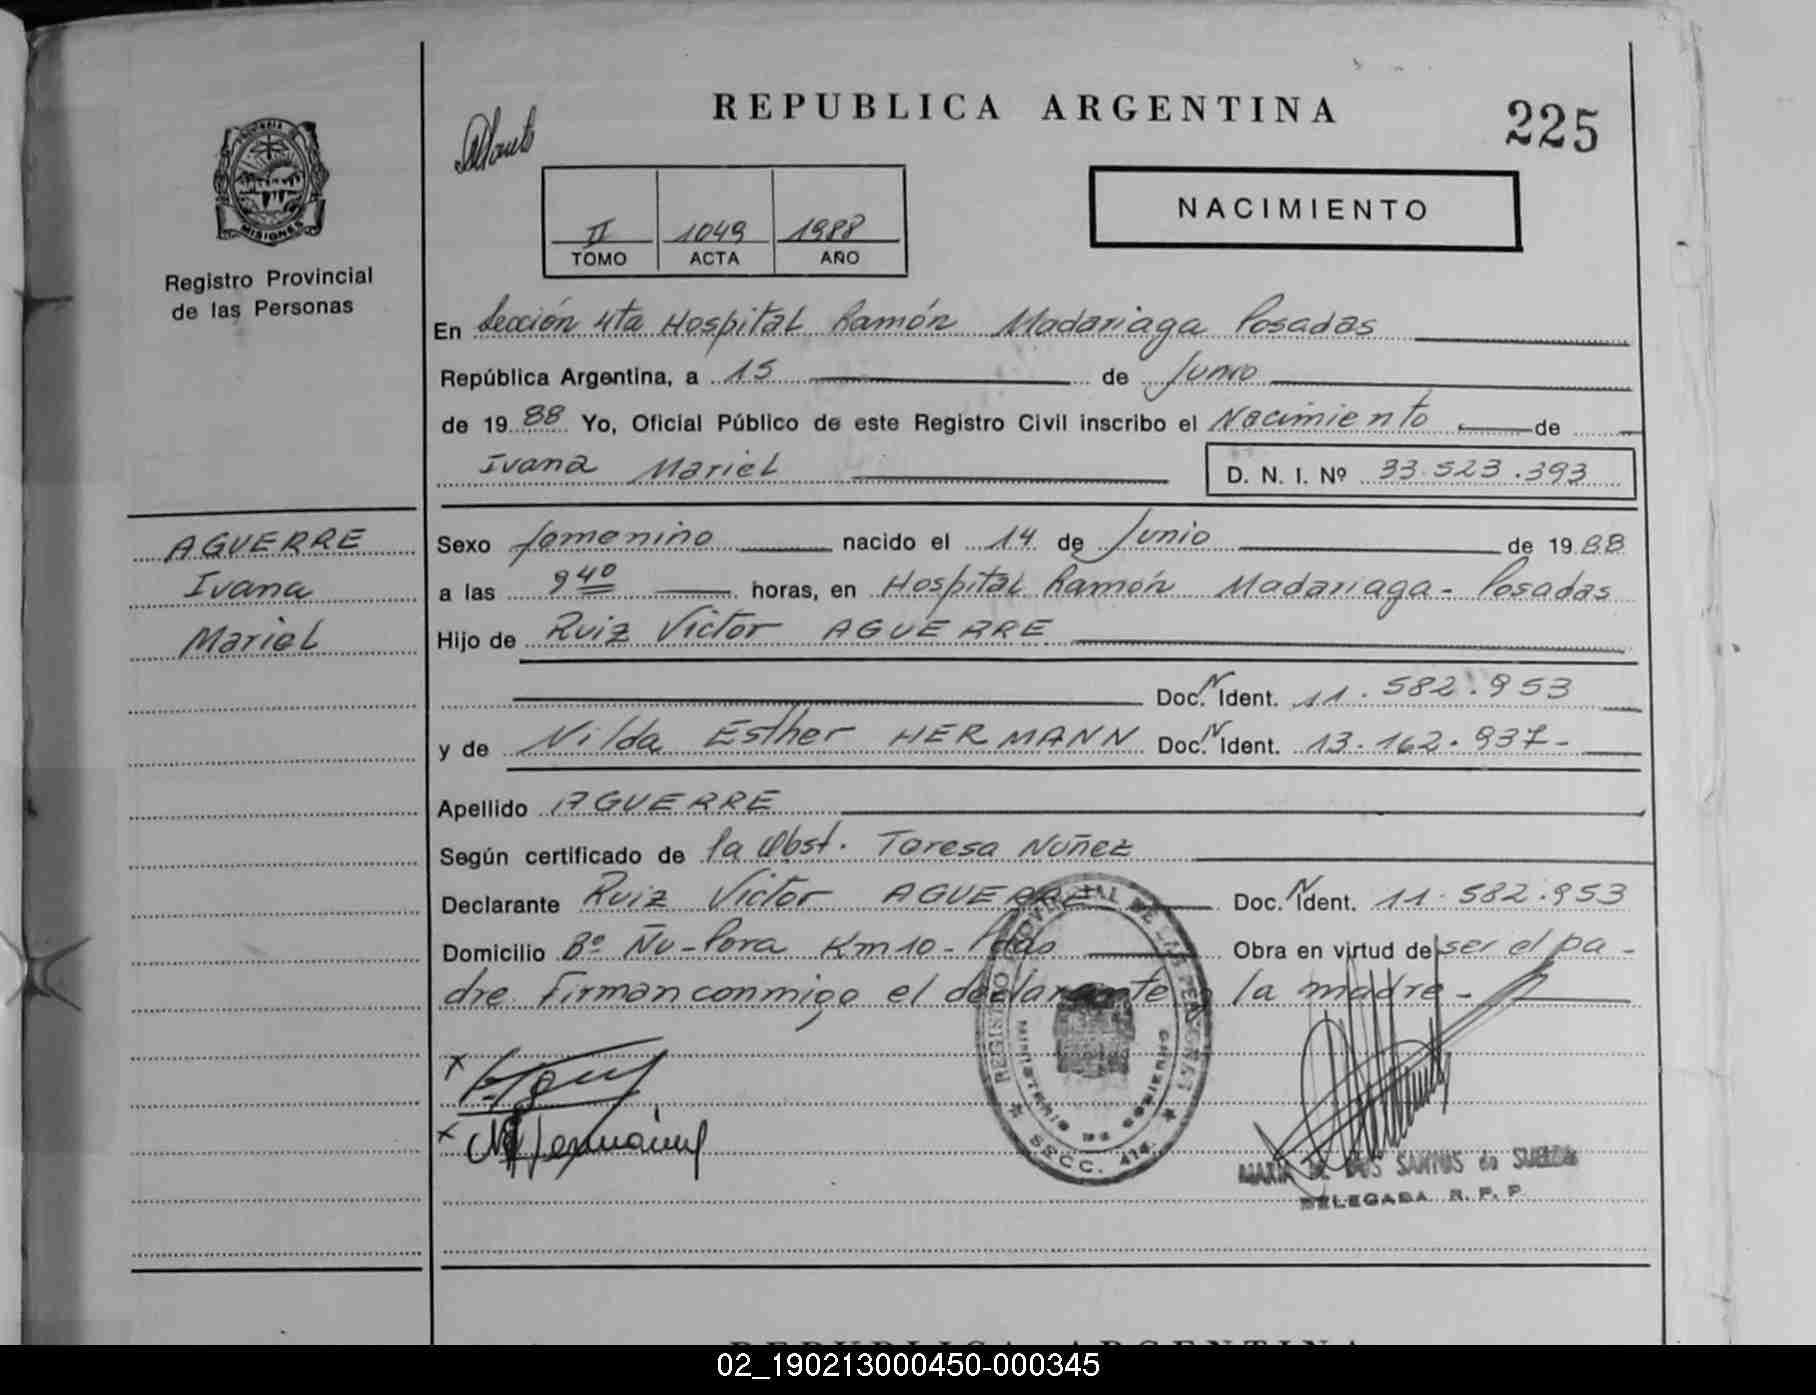 REPUBLICA ARGENTINA
225
PROVINCIA DE
MISIONES
Registro Provincial
de las Personas
NACIMIENTO
II 1049 1988
TOMO ACTA AÑO
En Sección 4ta Hospital Ramón Madariaga Posadas
República Argentina, a 15 de Junio
de 1988 Yo, Oficial Público de este Registro Civil inscribo el Nacimiento de
Ivana Mariel D. N. I. Nº 33.523.393
AGUERRE
Ivana
Mariel
Sexo femenino nacido el 14 de Junio de 1988
a las 9 40 horas, en Hospital Ramón Madariaga - Posadas
Hijo de Ruiz Victor AGUERRE
Doc. N Ident. 11.582.953
y de Nilda Esther HERMANN Doc. N Ident. 13.162.937-
Apellido AGUERRE
Según certificado de la Obst. Teresa Nuñez
Declarante Ruiz Victor AGUERRE Doc. N Ident. 11.582.953
Domicilio Bº Ñu-Pora Km 10- Pdas Obra en virtud de ser el pa-
dre. Firman conmigo el declarante y la madre-
REGISTRO PROVINCIAL DE LAS PERSONAS
MINISTERIO DE
SECC. 4ta.
x
x
MARIA DE DOS SANTOS de
DELEGADA R. P. P.
REPUBLICA ARGENTINA
02_190213000450-000345